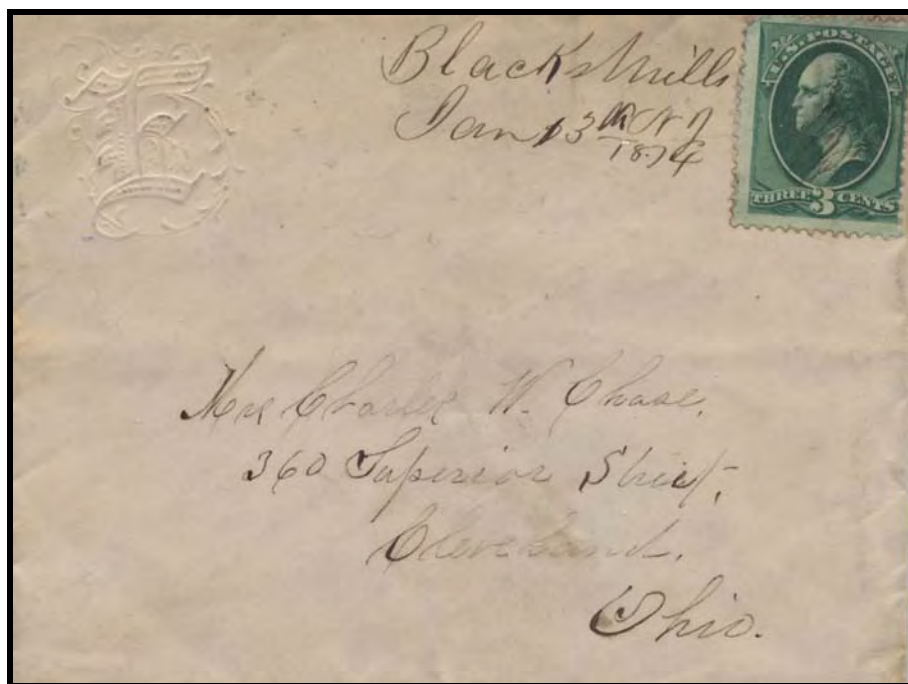 Blacks Mills
Jan 13th N J
1874
U.S. POSTAGE
THREE 3 CENTS
Mrs Charles W. Chase.
360 Superior Street,
Cleveland.
Ohio.